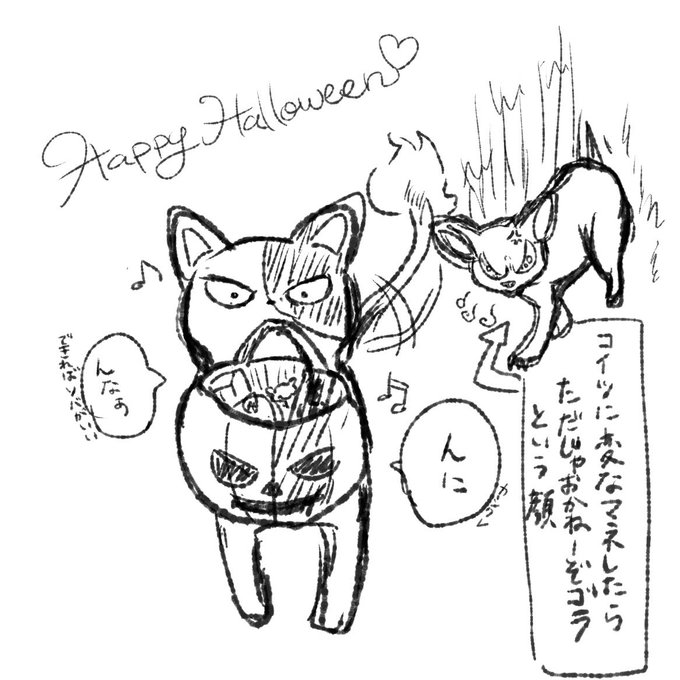 Happy Halloween♡
んなぁ
できればソバがいい
んに
コイツに変なマネしたら
ただじゃおかねーぞゴラ
という顔